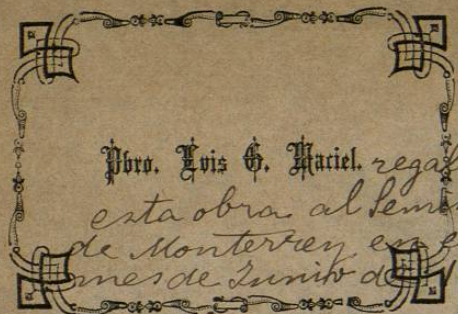 Pbro. Luis G. Maciel. regal
esta obra al Semi
de Monterrey en e
mes de Junio de